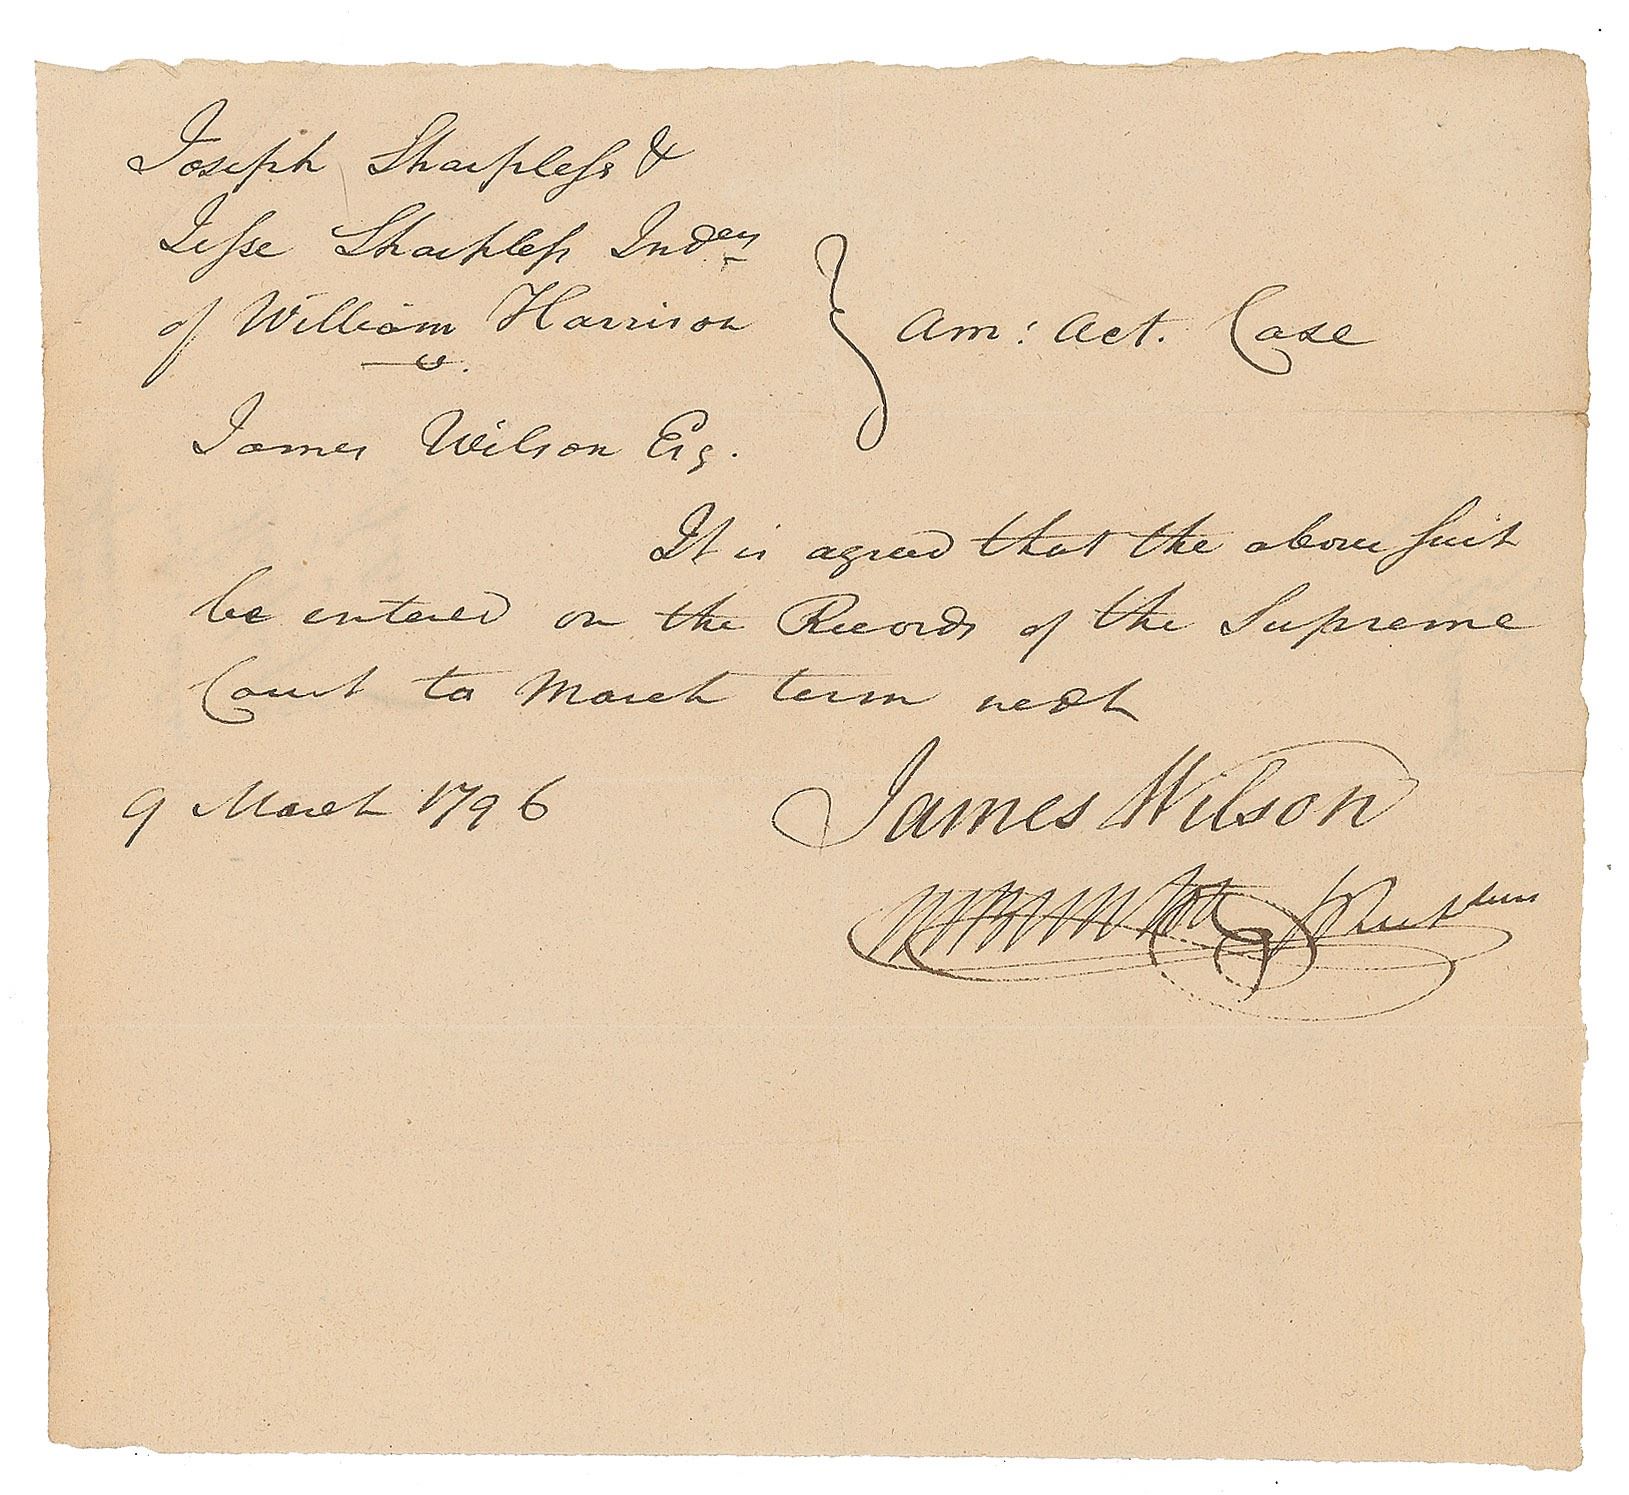 Joseph Sharpless &
Jesse Sharpless Indees
of William Harrison
v.
James Wilson Esq.
Am: Act. Case
It is agreed that the above Suit
be entered on the Records of the Supreme
Court to March term next
9 March 1796
James Wilson